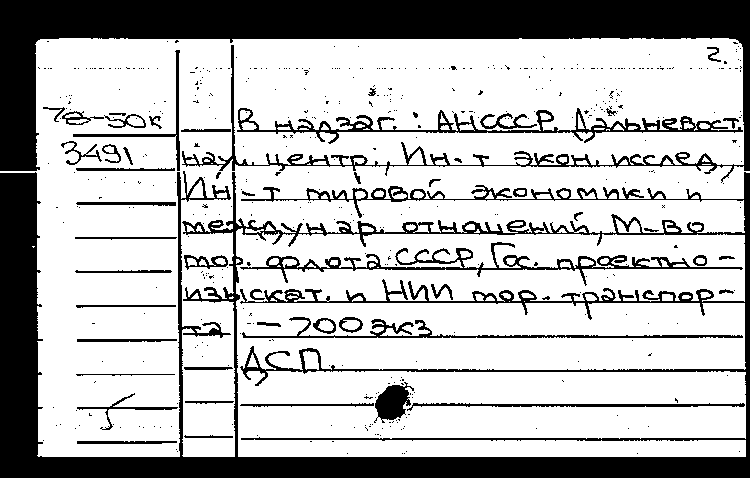 2.
78-50к В надзаг.: АН СССР. Дальневост.
3491 науч. центр., Ин-т экон. исслед.,
Ин-т мировой экономики и
междунар. отношений, М-во
мор. флота СССР, Гос. проектно-
изыскат. и НИИ мор. транспор-
та – 700 экз
ДСП.